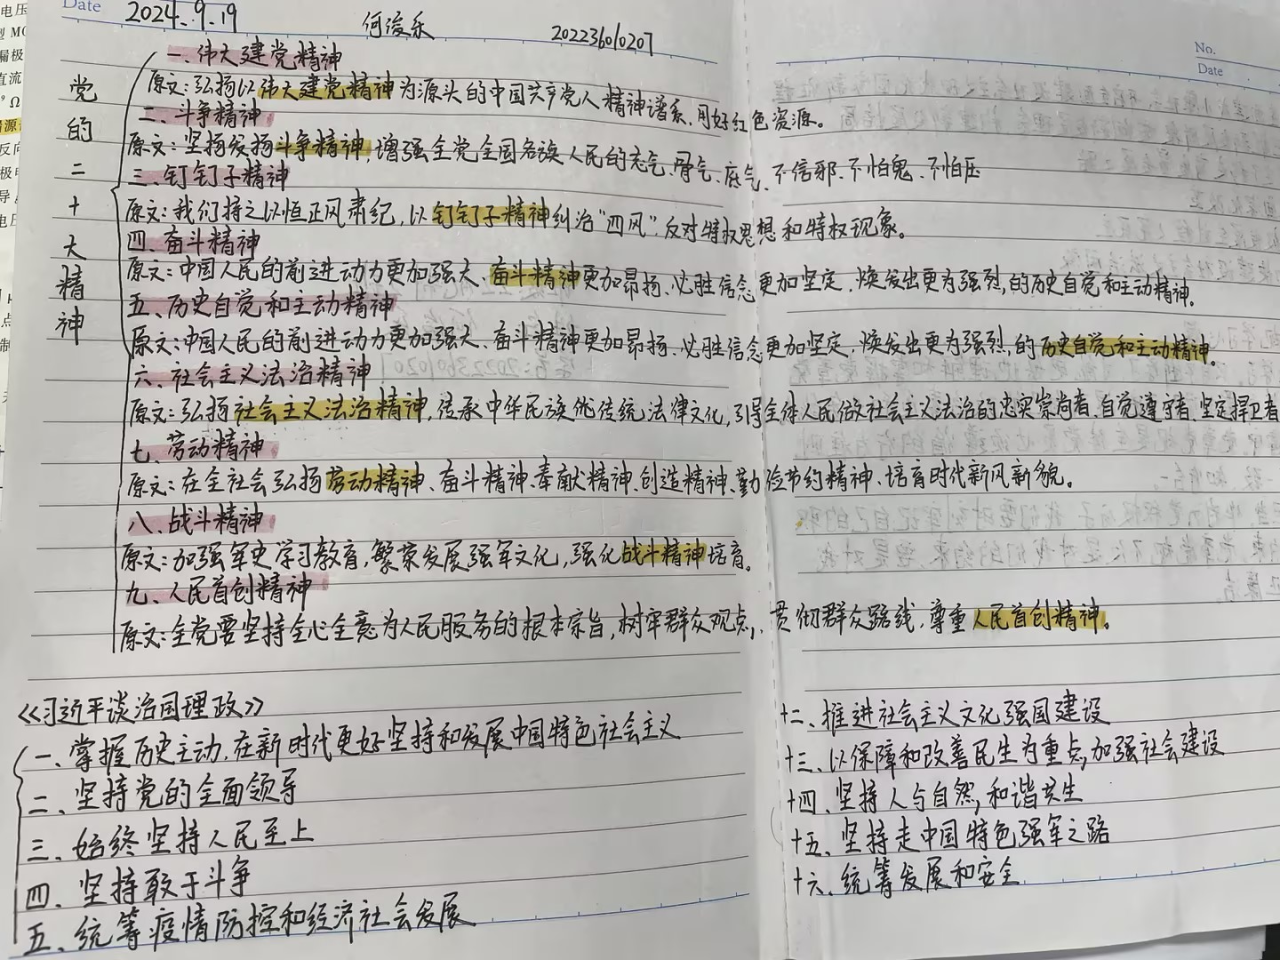 Date 2024.9.19 何浚乐 202236010207
No.
Date
党的二十大精神
一、伟大建党精神
原文：弘扬以伟大建党精神为源头的中国共产党人精神谱系，用好红色资源。
二、斗争精神
原文：坚持发扬斗争精神，增强全党全国各族人民的志气、骨气、底气、不信邪、不怕鬼、不怕压
三、钉钉子精神
原文：我们持之以恒正风肃纪，以钉钉子精神纠治"四风"，反对特权思想和特权现象。
四、奋斗精神
原文：中国人民的前进动力更加强大、奋斗精神更加昂扬、必胜信念更加坚定，焕发出更为强烈的历史自觉和主动精神。
五、历史自觉和主动精神
原文：中国人民的前进动力更加强大、奋斗精神更加昂扬、必胜信念更加坚定，焕发出更为强烈的历史自觉和主动精神。
六、社会主义法治精神
原文：弘扬社会主义法治精神，传承中华民族优传统法律文化，引导全体人民做社会主义法治的忠实崇尚者、自觉遵守者、坚定捍卫者
七、劳动精神
原文：在全社会弘扬劳动精神、奋斗精神、奉献精神、创造精神、勤俭节约精神，培育时代新风新貌。
八、战斗精神
原文：加强军史学习教育，繁荣发展强军文化，强化战斗精神培育。
九、人民首创精神
原文：全党要坚持全心全意为人民服务的根本宗旨，树牢群众观点，贯彻群众路线，尊重人民首创精神。
《习近平谈治国理政》
一、掌握历史主动，在新时代更好坚持和发展中国特色社会主义
二、坚持党的全面领导
三、始终坚持人民至上
四、坚持敢于斗争
五、统筹疫情防控和经济社会发展
十二、推进社会主义文化强国建设
十三、以保障和改善民生为重点，加强社会建设
十四、坚持人与自然，和谐共生
十五、坚持走中国特色强军之路
十六、统筹发展和安全